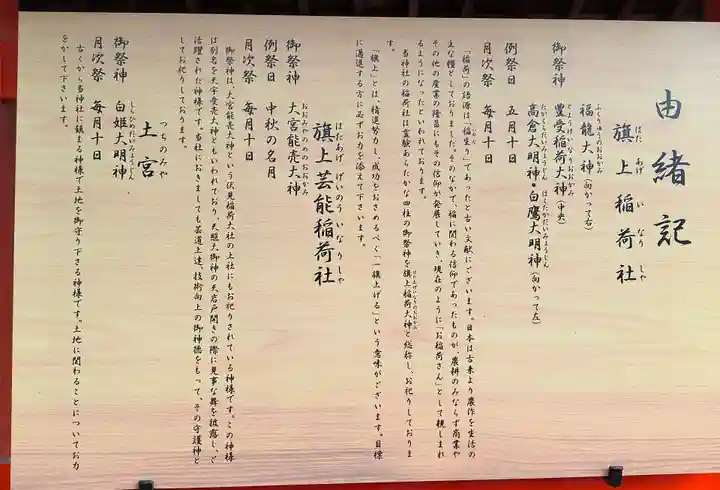 由緒記
旗上稲荷社
はたあげいなりしゃ
御祭神
福龍大神(向かって右)
豊受稲荷大神(中央)
とようけいなりおおかみ
高倉大明神・白鷹大明神(向かって左)
たかくらだいみょうじん はくたかだいみょうじん
例祭日 五月十日
月次祭 毎月十日
「稲荷」の語源は「稲生り」であったと古い文献にございます。日本は古来より農作を生活の
主な糧としておりました。そのなかで、稲に関わる信仰であったものが、農耕のみならず商業や
その他の産業の隆昌にもその信仰が発展していき、現在のように「お稲荷さん」として親しまれ
るようになったといわれております。
当神社の稲荷社は霊験あらたかな四柱の御祭神を旗上稲荷大神と総称し、お祀りしておりま
はたあげいなりのおおかみ
す。
「旗上」とは、精進努力し、成功をおさめるべく「一旗上げる」という意味がございます。目標
に邁進する方に必ずお力を添えて下さいます。
旗上芸能稲荷社
はたあげ げいのういなりしゃ
御祭神 大宮能売大神
おおみやのめのおおかみ
例祭日 中秋の名月
月次祭 毎月十日
御祭神は、大宮能売大神という伏見稲荷大社の上社にもお祀りされている神様です。この神様
は別名を天宇受売大神ともいわれており、天照大御神の天岩戸開きの際に見事な舞を披露し、ご
活躍された神様です。当社におきましても芸道上達、技術向上の御神徳をもって、その守護神と
してお祀りしております。
土宮
つちのみや
御祭神 白姫大明神
しらひめだいみょうじん
月次祭 毎月十日
古くから当神社に鎮まる神様で土地を御守り下さる神様です。土地に関わることについてお力
をかして下さいます。